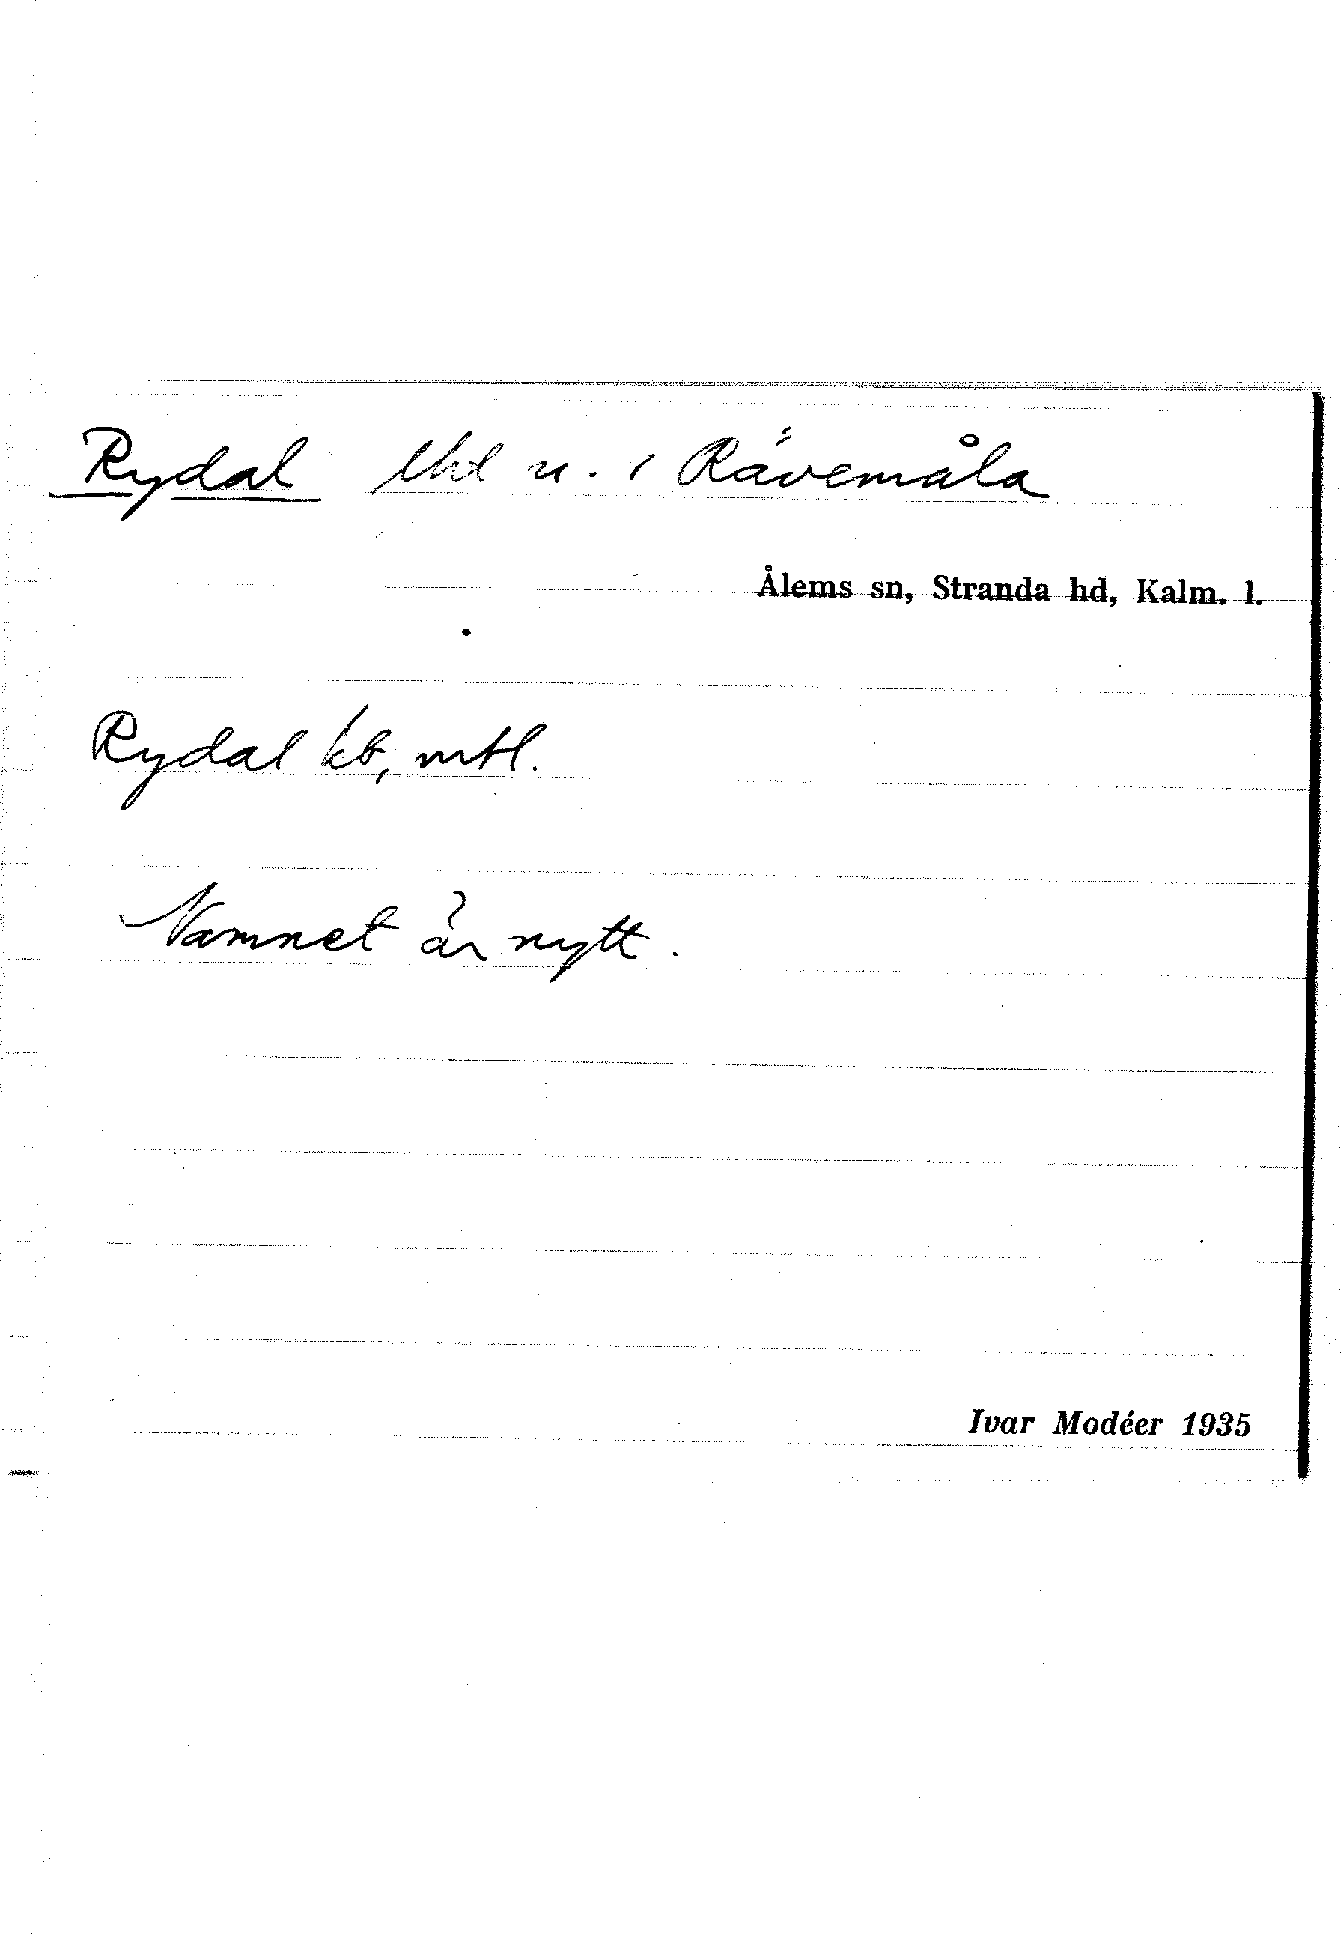 Rydal lht u. i Rävemåla
Ålems sn, Stranda hd, Kalm. l.
Rydal kb, mtl.
Namnet är nytt.
Ivar Modéer 1935